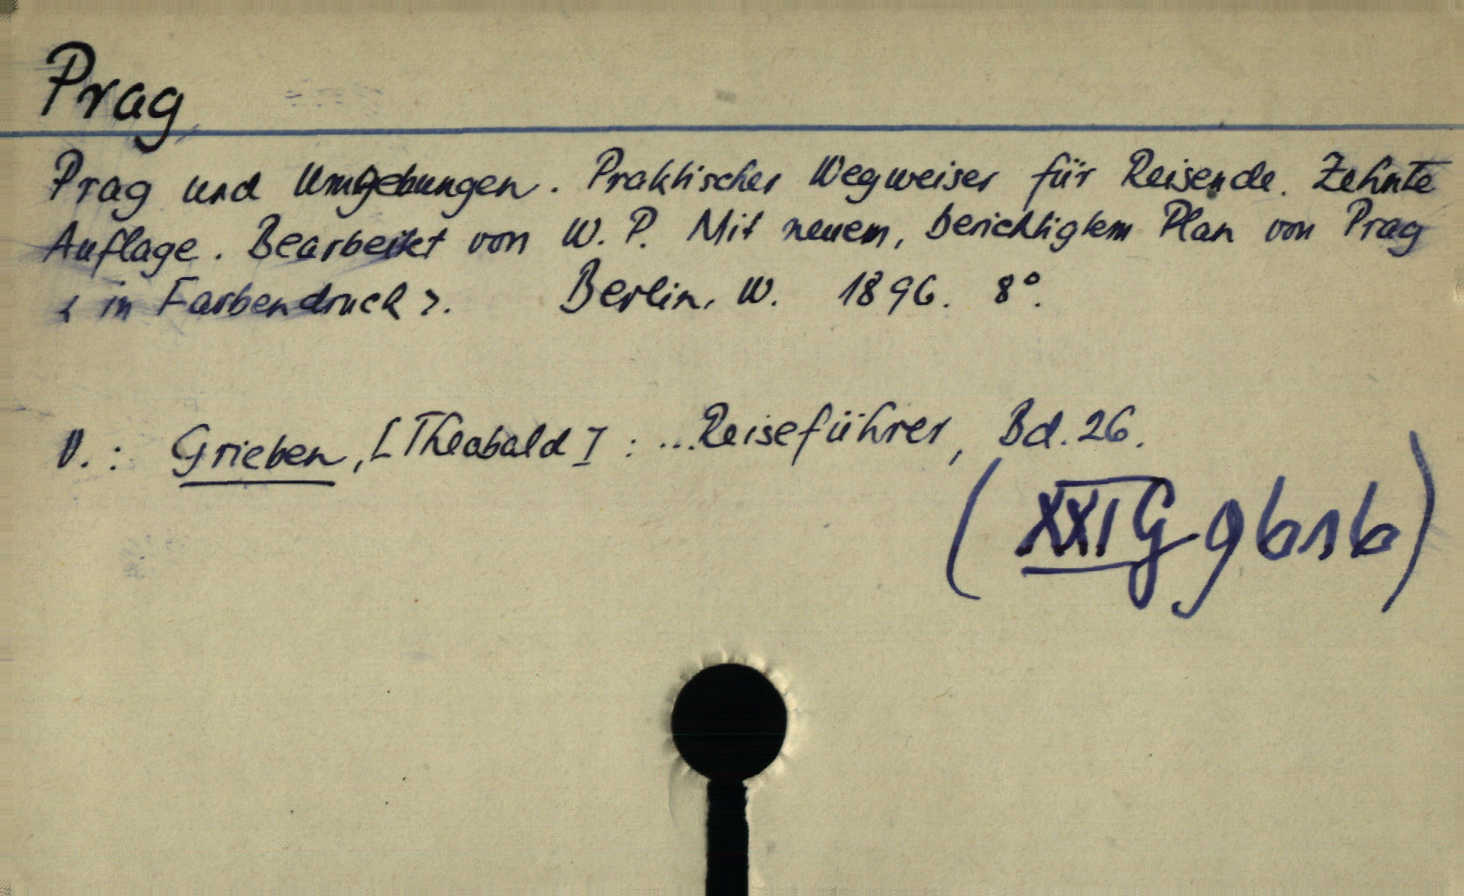 Prag
Prag und Umgebungen. Praktischer Wegweiser für Reisende. Zehnte
Auflage. Bearbeitet von W. P. Mit neuem, berichtigtem Plan von Prag
< in Farbendruck >. Berlin, W. 1896. 8°.
V.: Grieben, [Theobald]: ...Reiseführer, Bd. 26.
(XXI G g b 1 b)